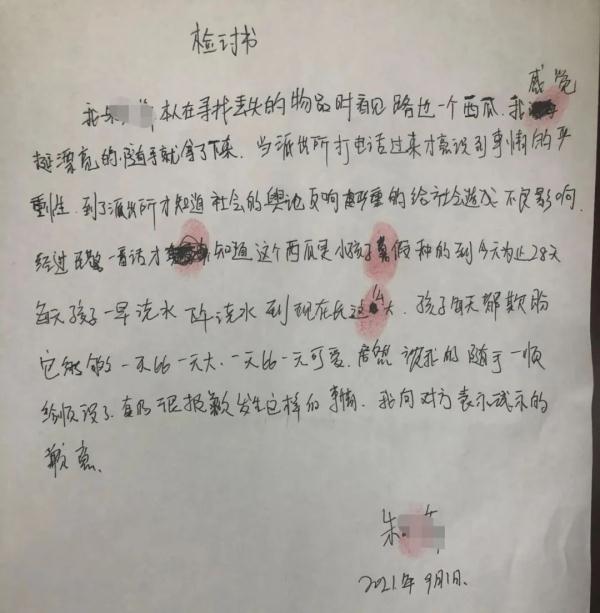 检讨书
我朱 本人在寻找丢失的物品时看见路边一个西瓜.我感觉
挺漂亮的.随手就拿了下来.当派出所打电话过来才意识到事情的严
重性.到了派出所才知道社会的舆论反响 严重的给社会造成不良影响.
经过 一番话才 知道这个西瓜是小孩子暑假种的到今天为止28天
每天孩子一早浇水 下午浇水 到现在长这么大.孩子每天都期盼
它能够一天比一天大.一天比一天可爱.居然被我的随手一顺
给顺没了.真的很抱歉发生这样的事情.我向对方表示诚示的
歉意.
朱
2021年9月1日.